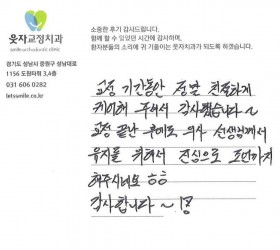 웃자교정치과
smile orthodontic clinic
경기도 성남시 중원구 성남대로
1156 도원타워 3,4층
031 606 0282
letssmile.co.kr
소중한 후기 감사드립니다.
함께 할 수 있었던 시간에 감사하며,
환자분들의 소리에 귀 기울이는 웃자치과가 되도록 하겠습니다.
교정 기간동안 정말 친절하게
케어해 주셔서 감사했습니다~
교정 끝난 후에도 의사 선생님께서
유지를 위해서 진심으로 조언까지
해주시네요 ㅎㅎ
감사합니다~